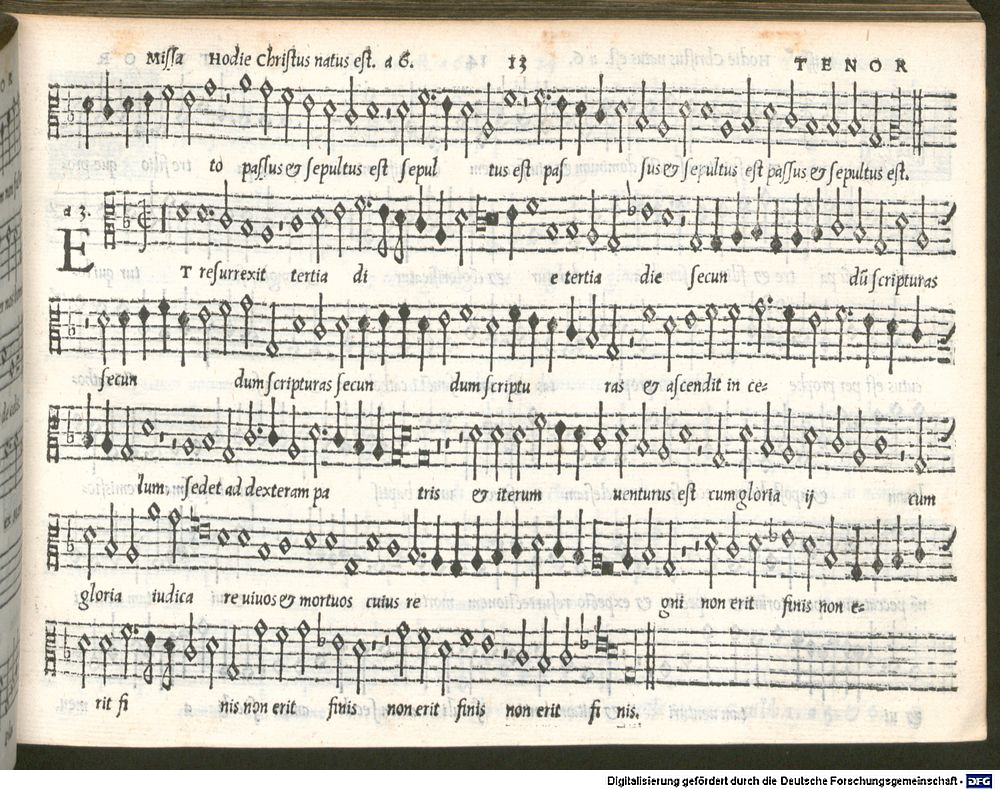 Missa Hodie Christus natus est. a 6. 13 TENOR
to passus & sepultus est sepul tus est pas sus & sepultus est passus & sepultus est.
a 3.
ET resurrexit tertia di e tertia die secun dũ scripturas
secun dum scripturas secun dum scriptu ras & ascendit in ce-
lum sedet ad dexteram pa tris & iterum uenturus est cum gloria ij cum
gloria iudica re uiuos & mortuos cuius re gni non erit finis non e-
rit fi nis non erit finis non erit finis non erit fi nis.
Digitalisierung gefördert durch die Deutsche Forschungsgemeinschaft - DFG